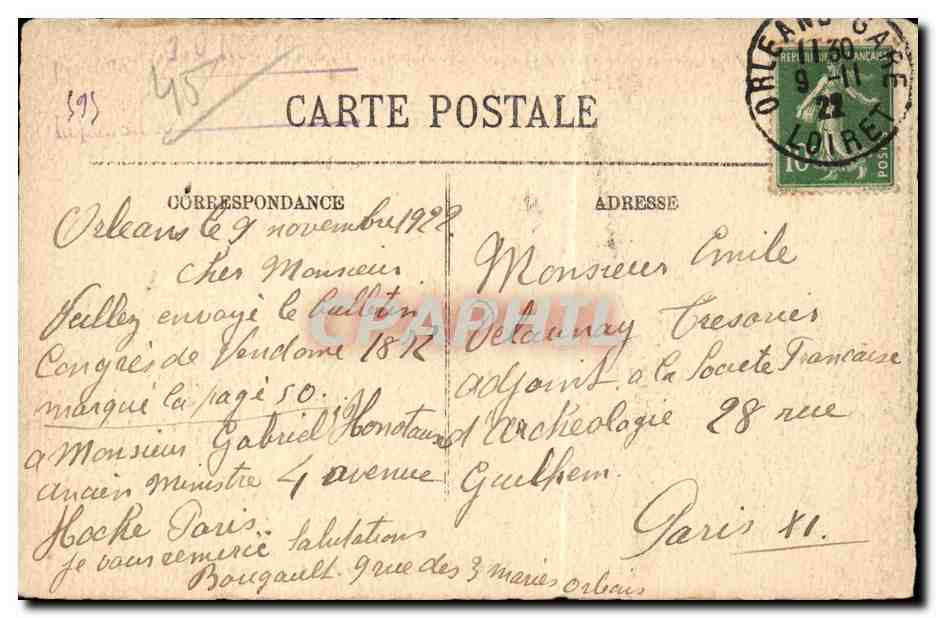 595
45
CARTE POSTALE
ORLEANS GARE
11 30
9 -11
22
LOIRET
REPUBLIQUE FRANCAISE
10
POSTES
CORRESPONDANCE
Orleans le 9 novembre 1922
Cher Monsieur
Veillez envoyé le bulletin
Congrès de Vendome 1872
marqué la page 50.
a Monsieur Gabriel Honotaux
ancien Ministre 4 avenue
Hoche Paris.
je vous remercie Salutations
Bougault. 9 rue des 3 maries orleans
ADRESSE
Monsieur Emile
Delaunay Tresorier
adjoint a la Societe Francaise
d'Archéologie 28 rue
Guilhem.
Paris XI.
CPAPHIL